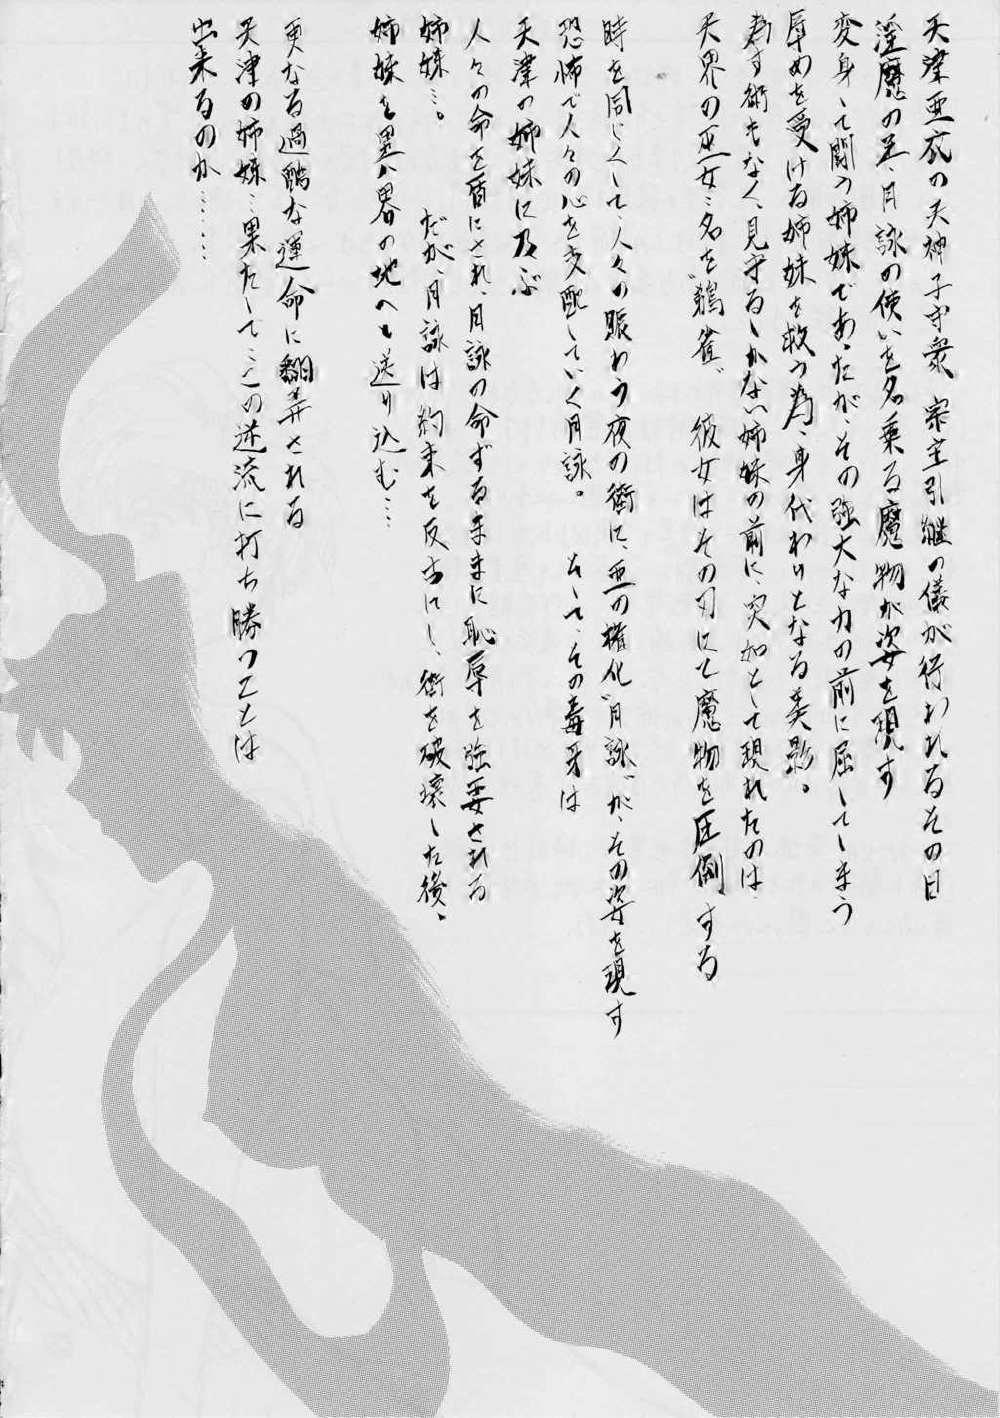 天津亜衣の天神子守衆　宗主引継の儀が行われるその日
淫魔の王、月詠の使いを名乗る魔物が姿を現す
変身して闘う姉妹であったが、その強大な力の前に屈してしまう
辱めを受ける姉妹を救う為、身代わりとなる美影。
為す術もなく、見守るしかない姉妹の前に、突如として現れたのは
天界の巫女…名を〝鶺雀〟　彼女はその刃にて魔物を圧倒する
時を同じくして、人々の賑わう夜の街に、悪の権化〝月詠〟が、その姿を現す
恐怖で人々の心を支配していく月詠。　そして、その毒牙は
天津の姉妹に及ぶ
人々の命を盾にされ、月詠の命ずるままに恥辱を強要される
姉妹…。　だが、月詠は約束を反古にし、街を破壊した後、
姉妹を異界の地へと送り込む…
更なる過酷な運命に翻弄される
天津の姉妹…果たして…この逆流に打ち勝つことは
出来るのか……